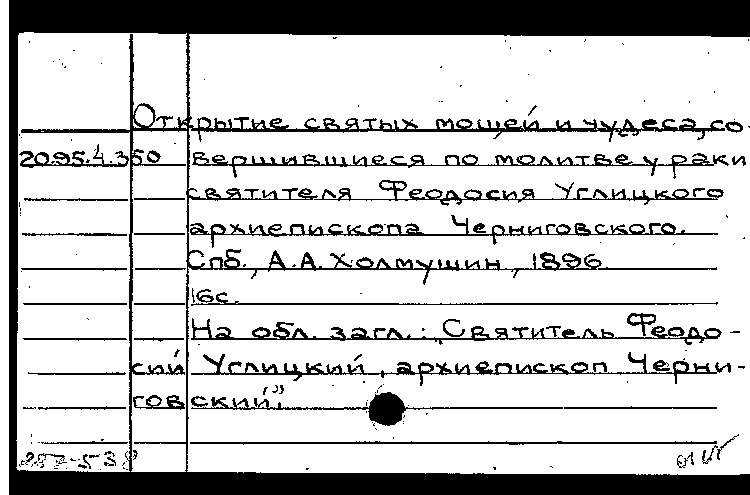 Открытие святых мощей и чудеса, со-
2095.4.350 вершившиеся по молитве у раки
святителя Феодосия Углицкого
архиепископа Черниговского.
Спб., А.А. Холмушин, 1896
16с.
На обл. загл.: „Святитель Феодо-
сий Углицкий, архиепископ Черни-
говский”.
287-538